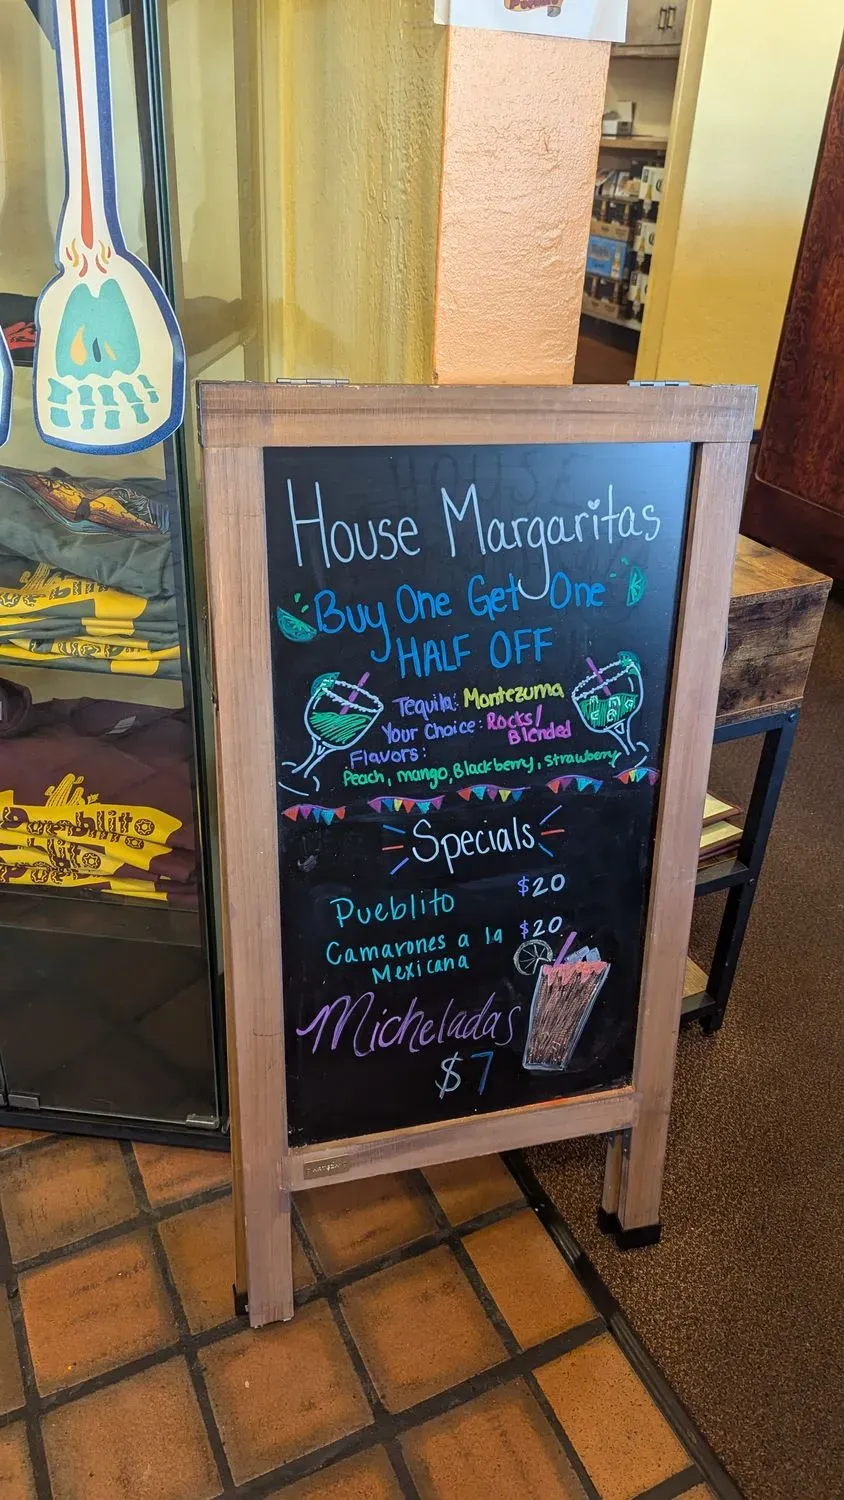 House Margaritas
Buy One Get One
HALF OFF
Tequila: Montezuma
Your Choice: Rocks/
Blended
Flavors:
Peach, mango, Blackberry, strawberry
Specials
Pueblito $20
Camarones a la $20
Mexicana
Micheladas
$7
Pueblito